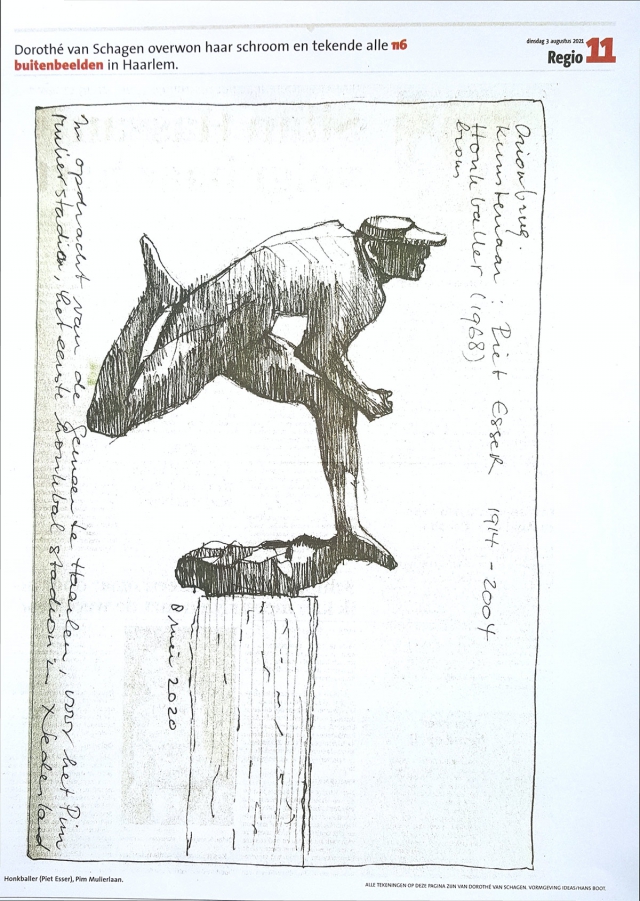 Dorothé van Schagen overwon haar schroom en tekende alle 116
buitenbeelden in Haarlem.
dinsdag 3 augustus 2021
Regio 11
Orionbrug.
Kunstenaar: Piet Esser 1914 - 2004
Honkballer (1968)
brons
8 mei 2020
In opdracht van de Gemeente Haarlem, voor het Pim
Mulierstadion, het eerste honkbal stadion in Nederland
Honkballer (Piet Esser), Pim Mulierlaan.
ALLE TEKENINGEN OP DEZE PAGINA ZIJN VAN DOROTHÉ VAN SCHAGEN. VORMGEVING IDEAS/HANS BOOT.